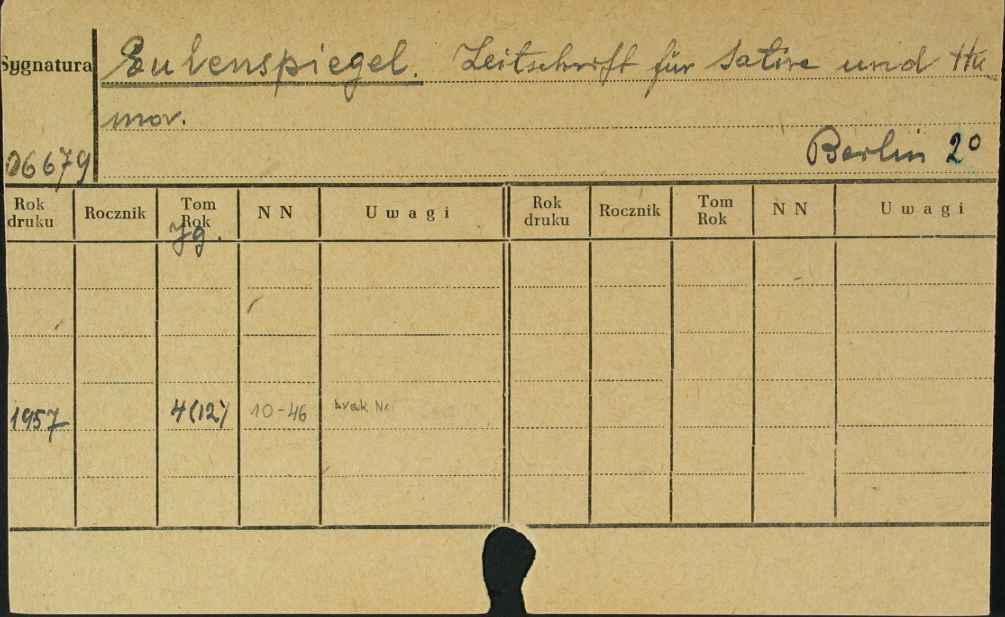 Sygnatura Eulenspiegel. Zeitschrift für Satire und Hu
mor.
06679 Berlin 2°
Rok druku Rocznik Tom Rok NN Uwagi Rok druku Rocznik Tom Rok NN Uwagi
Jg.
1957 4(12) 10-46 brak Nr